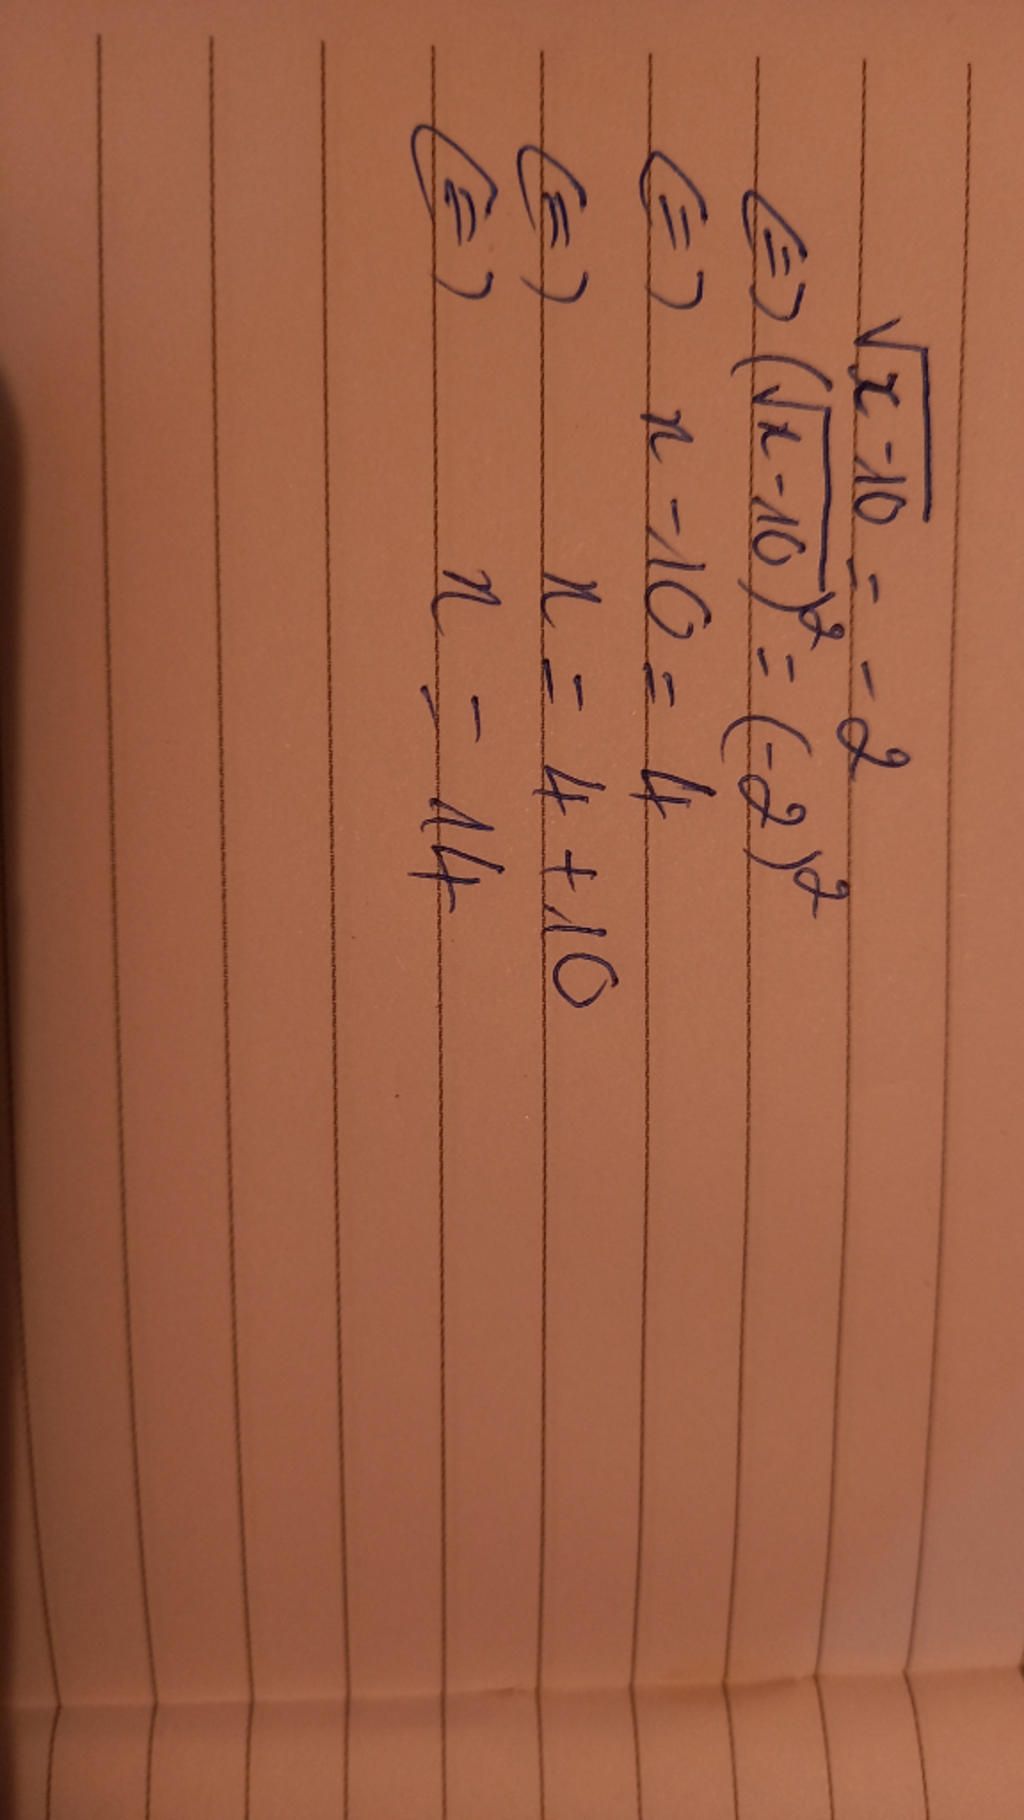 √(x-10) = -2
(=) (√(x-10))² = (-2)²
(=) x - 10 = 4
(=) x = 4 + 10
(=) x = 14